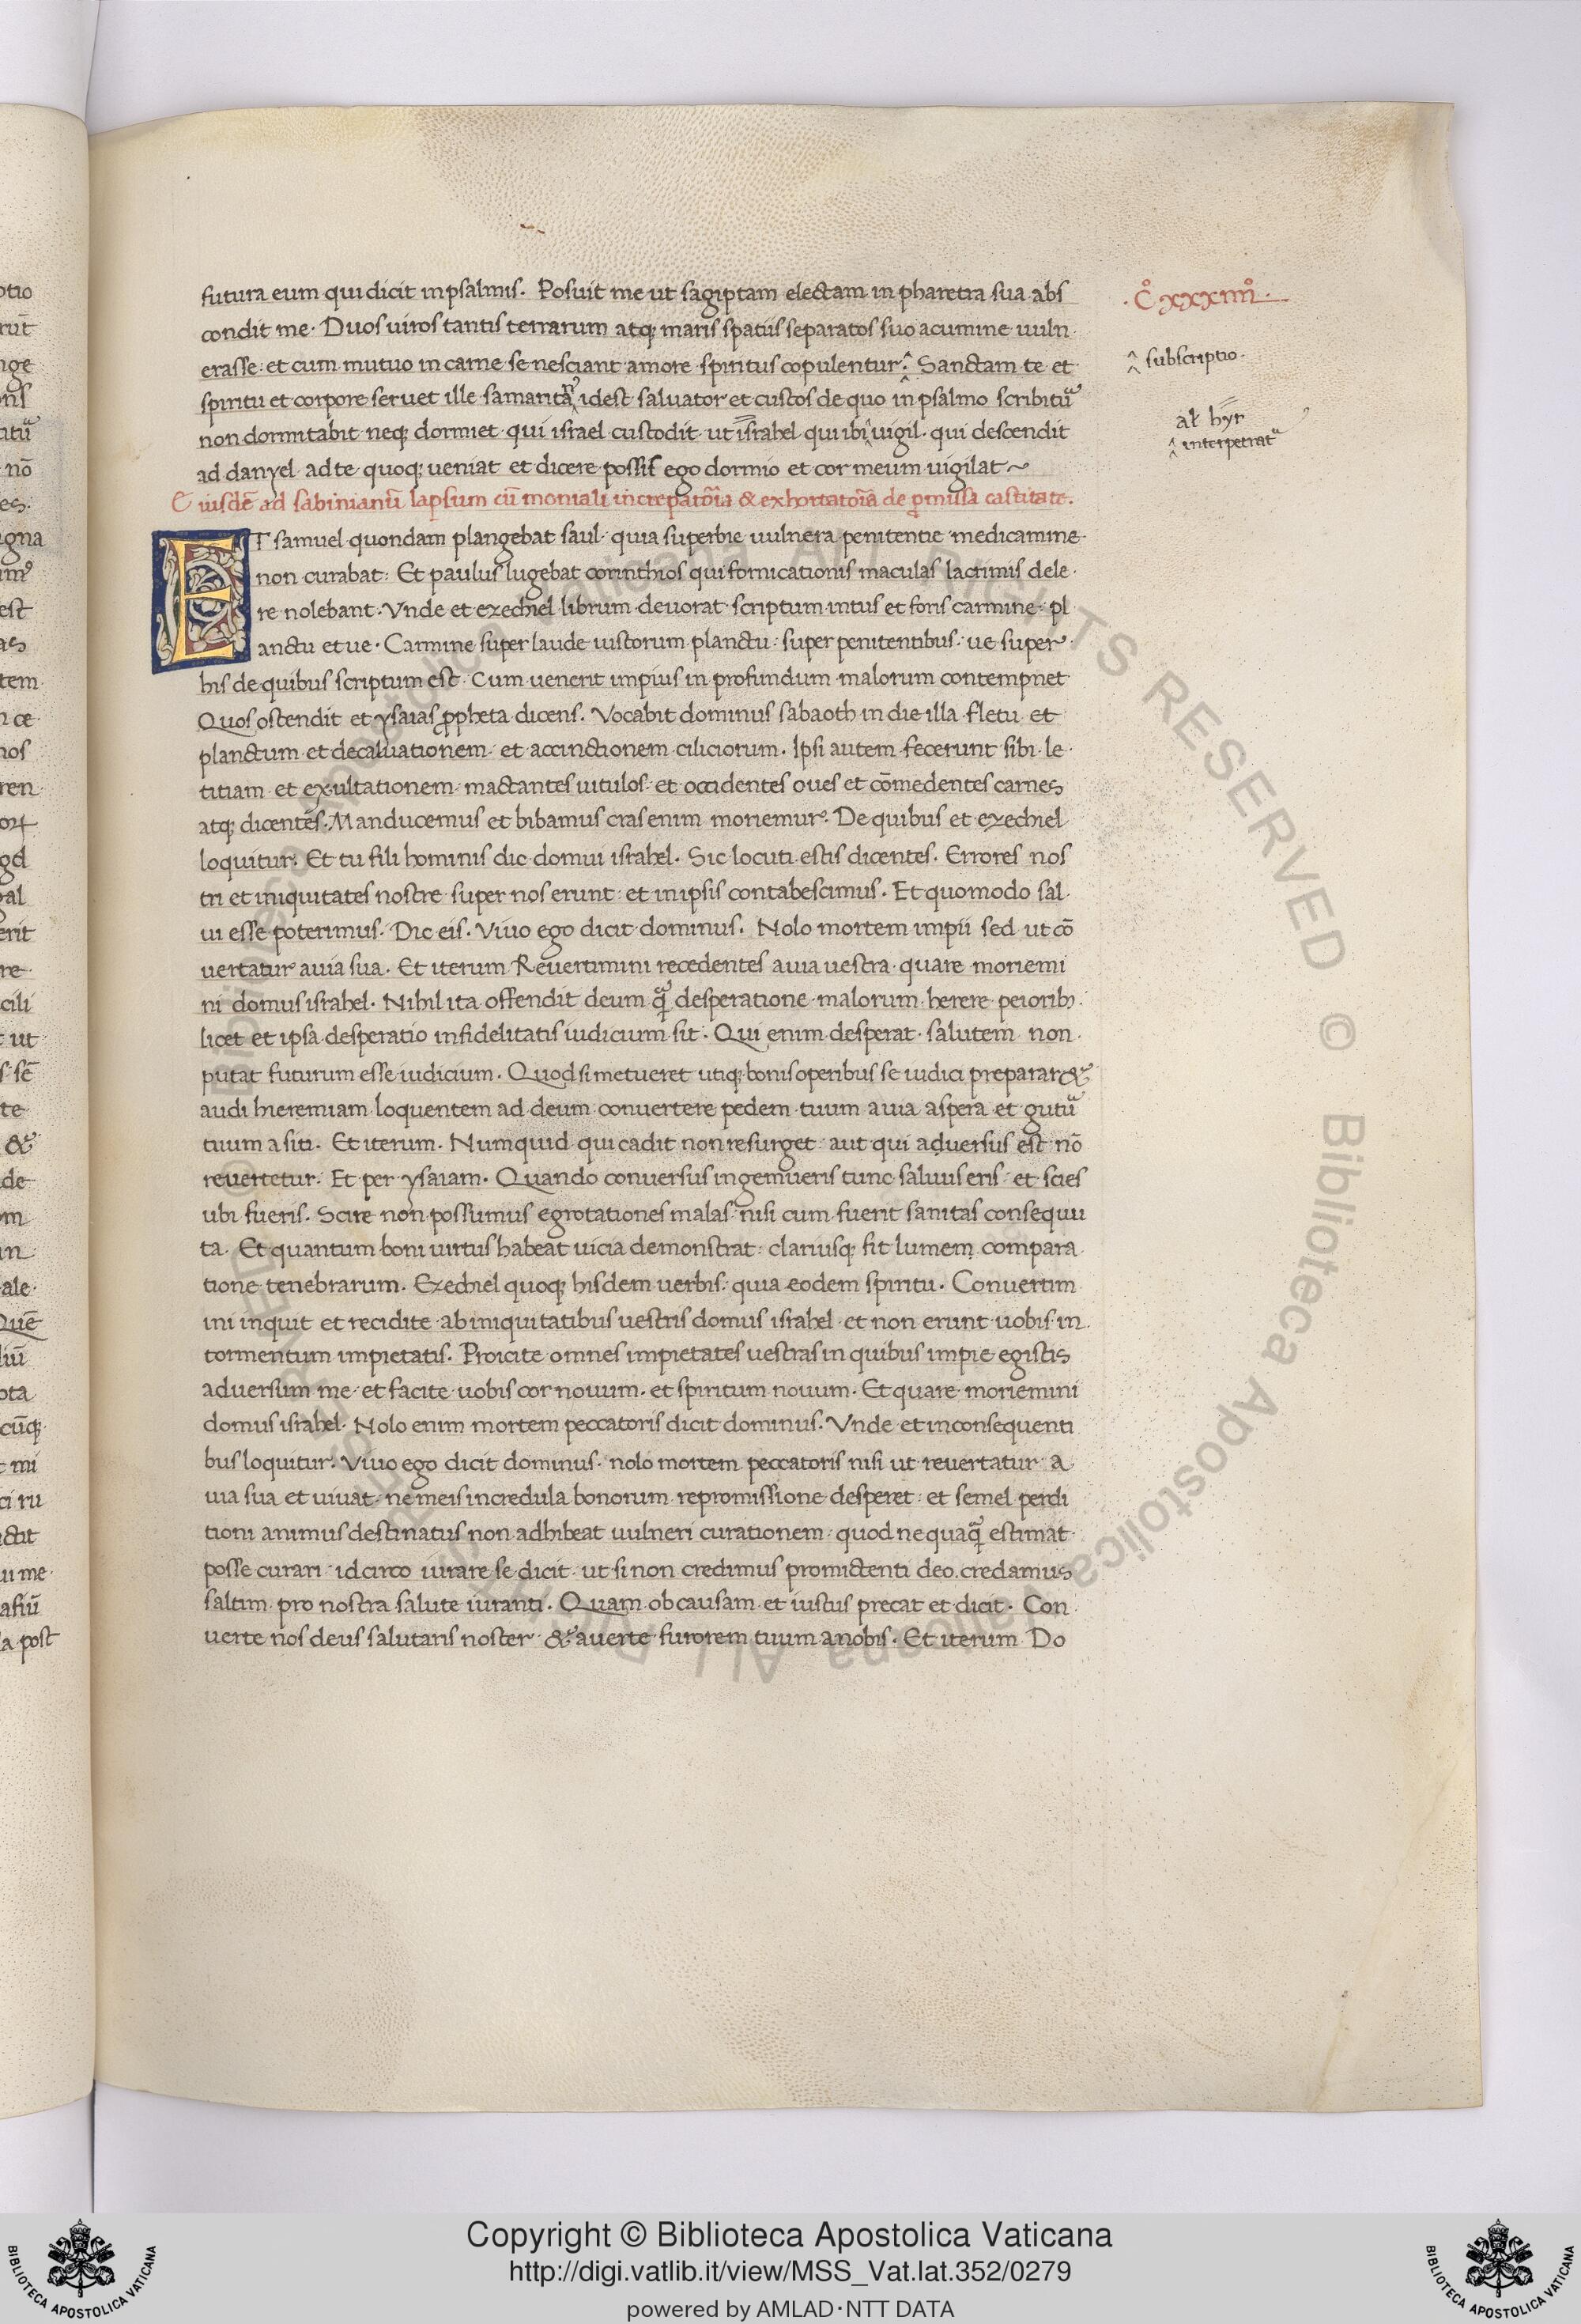 futura eum qui dicit in psalmis. Posuit me ut sagiptam electam in pharetra sua abs
condit me. Duos uiros tantis terrarum atq; maris spatiis separatos suo acumine uuln
erasse. et cum mutuo in carne se nesciant amore spiritus copulentur. Sanctam te et
spiritu et corpore seruet ille samarita idest saluator et custos de quo in psalmo scribitu
non dormitabit neq; dormiet qui israel custodit ut israhel qui ibi uigil. qui descendit
ad danyel ad te quoq; ueniat et dicere possit ego dormio et cor meum uigilat~
Eiusdē ad sabinianū lapsum cū moniali increpatoīa & exhortatoīa de pmissa castitate.
ET samuel quondam plangebat saul. quia superbie uulnera penitentie medicamine
non curabat: Et paulus lugebat corinthios qui fornicationis maculas lacrimis dele
re nolebant. Vnde et ezechiel librum deuorat scriptum intus et foris carmine pl
anctu et ue. Carmine super laude iustorum planctu: super penitentibus: ue super
his de quibus scriptum est. Cum uenerit impius in profundum malorum contempnet
Quos ostendit et ysaias ppheta dicens. Vocabit dominus sabaoth in die illa fletu et
planctum et decaluationem et accinctionem ciliciorum. Ipsi autem fecerunt sibi le
titiam et exultationem mactantes uitulos et occidentes oues et cōmedentes carnes
atq; dicentes. Manducemus et bibamus cras enim moriemur. De quibus et ezechiel
loquitur. Et tu fili hominis dic domui israhel. Sic locuti estis dicentes. Errores nos
tri et iniquitates nostre super nos erunt et in ipsis contabescimus. Et quomodo sal
ui esse poterimus. Dic eis. Viuo ego dicit dominus. Nolo mortem impii sed ut cō
uertatur a uia sua. Et iterum Reuertimini recedentes a uia uestra quare moriemi
ni domus israhel. Nihil ita offendit deum q̄ desperatione malorum herere peiorib;
licet et ipsa desperatio infidelitatis iudicium sit. Qui enim desperat salutem non
putat futurum esse iudicium. Quod si metueret utiq; bonis operibus se iudici preparar&
audi hieremiam loquentem ad deum conuertere pedem tuum a uia aspera et gutu
tuum a siti. Et iterum. Numquid qui cadit non resurget: aut qui aduersus est nō
reuertetur. Et per ysaiam. Quando conuersus ingemueris tunc saluus eris: et scies
ubi fueris. Scire non possumus egrotationes malas nisi cum fuerit sanitas consequu
ta. Et quantum boni uirtus habeat uicia demonstrat: clariusq; fit lumem compara
tione tenebrarum. Ezechiel quoq; hisdem uerbis. quia eodem spiritu. Conuertim
ini inquit et recidite ab iniquitatibus uestris domus israhel et non erunt uobis in
tormentum impietatis. Proicite omnes impietates uestras in quibus impie egistis
aduersum me et facite uobis cor nouum. et spiritum nouum. Et quare moriemini
domus israhel. Nolo enim mortem peccatoris dicit dominus. Vnde et in consequenti
bus loquitur. Viuo ego dicit dominus. nolo mortem peccatoris nisi ut reuertatur a
uia sua et uiuat ne meis incredula bonorum repromissione desperet: et semel perdi
tioni animus destinatus non adhibeat uulneri curationem quod nequaq̄ estimat
posse curari idcirco iurare se dicit. ut si non credimus promictenti deo credamus
saltim pro nostra salute iuranti. Quam ob causam et iustus precat et dicit. Con
uerte nos deus salutaris noster & auerte furorem tuum a nobis. Et iterum Do
subscriptio.
al hyr
interpetrat
Copyright © Biblioteca Apostolica Vaticana
http://digi.vatlib.it/view/MSS_Vat.lat.352/0279
powered by AMLAD·NTT DATA
BIBLIOTECA APOSTOLICA VATICANA
BIBLIOTECA APOSTOLICA VATICANA